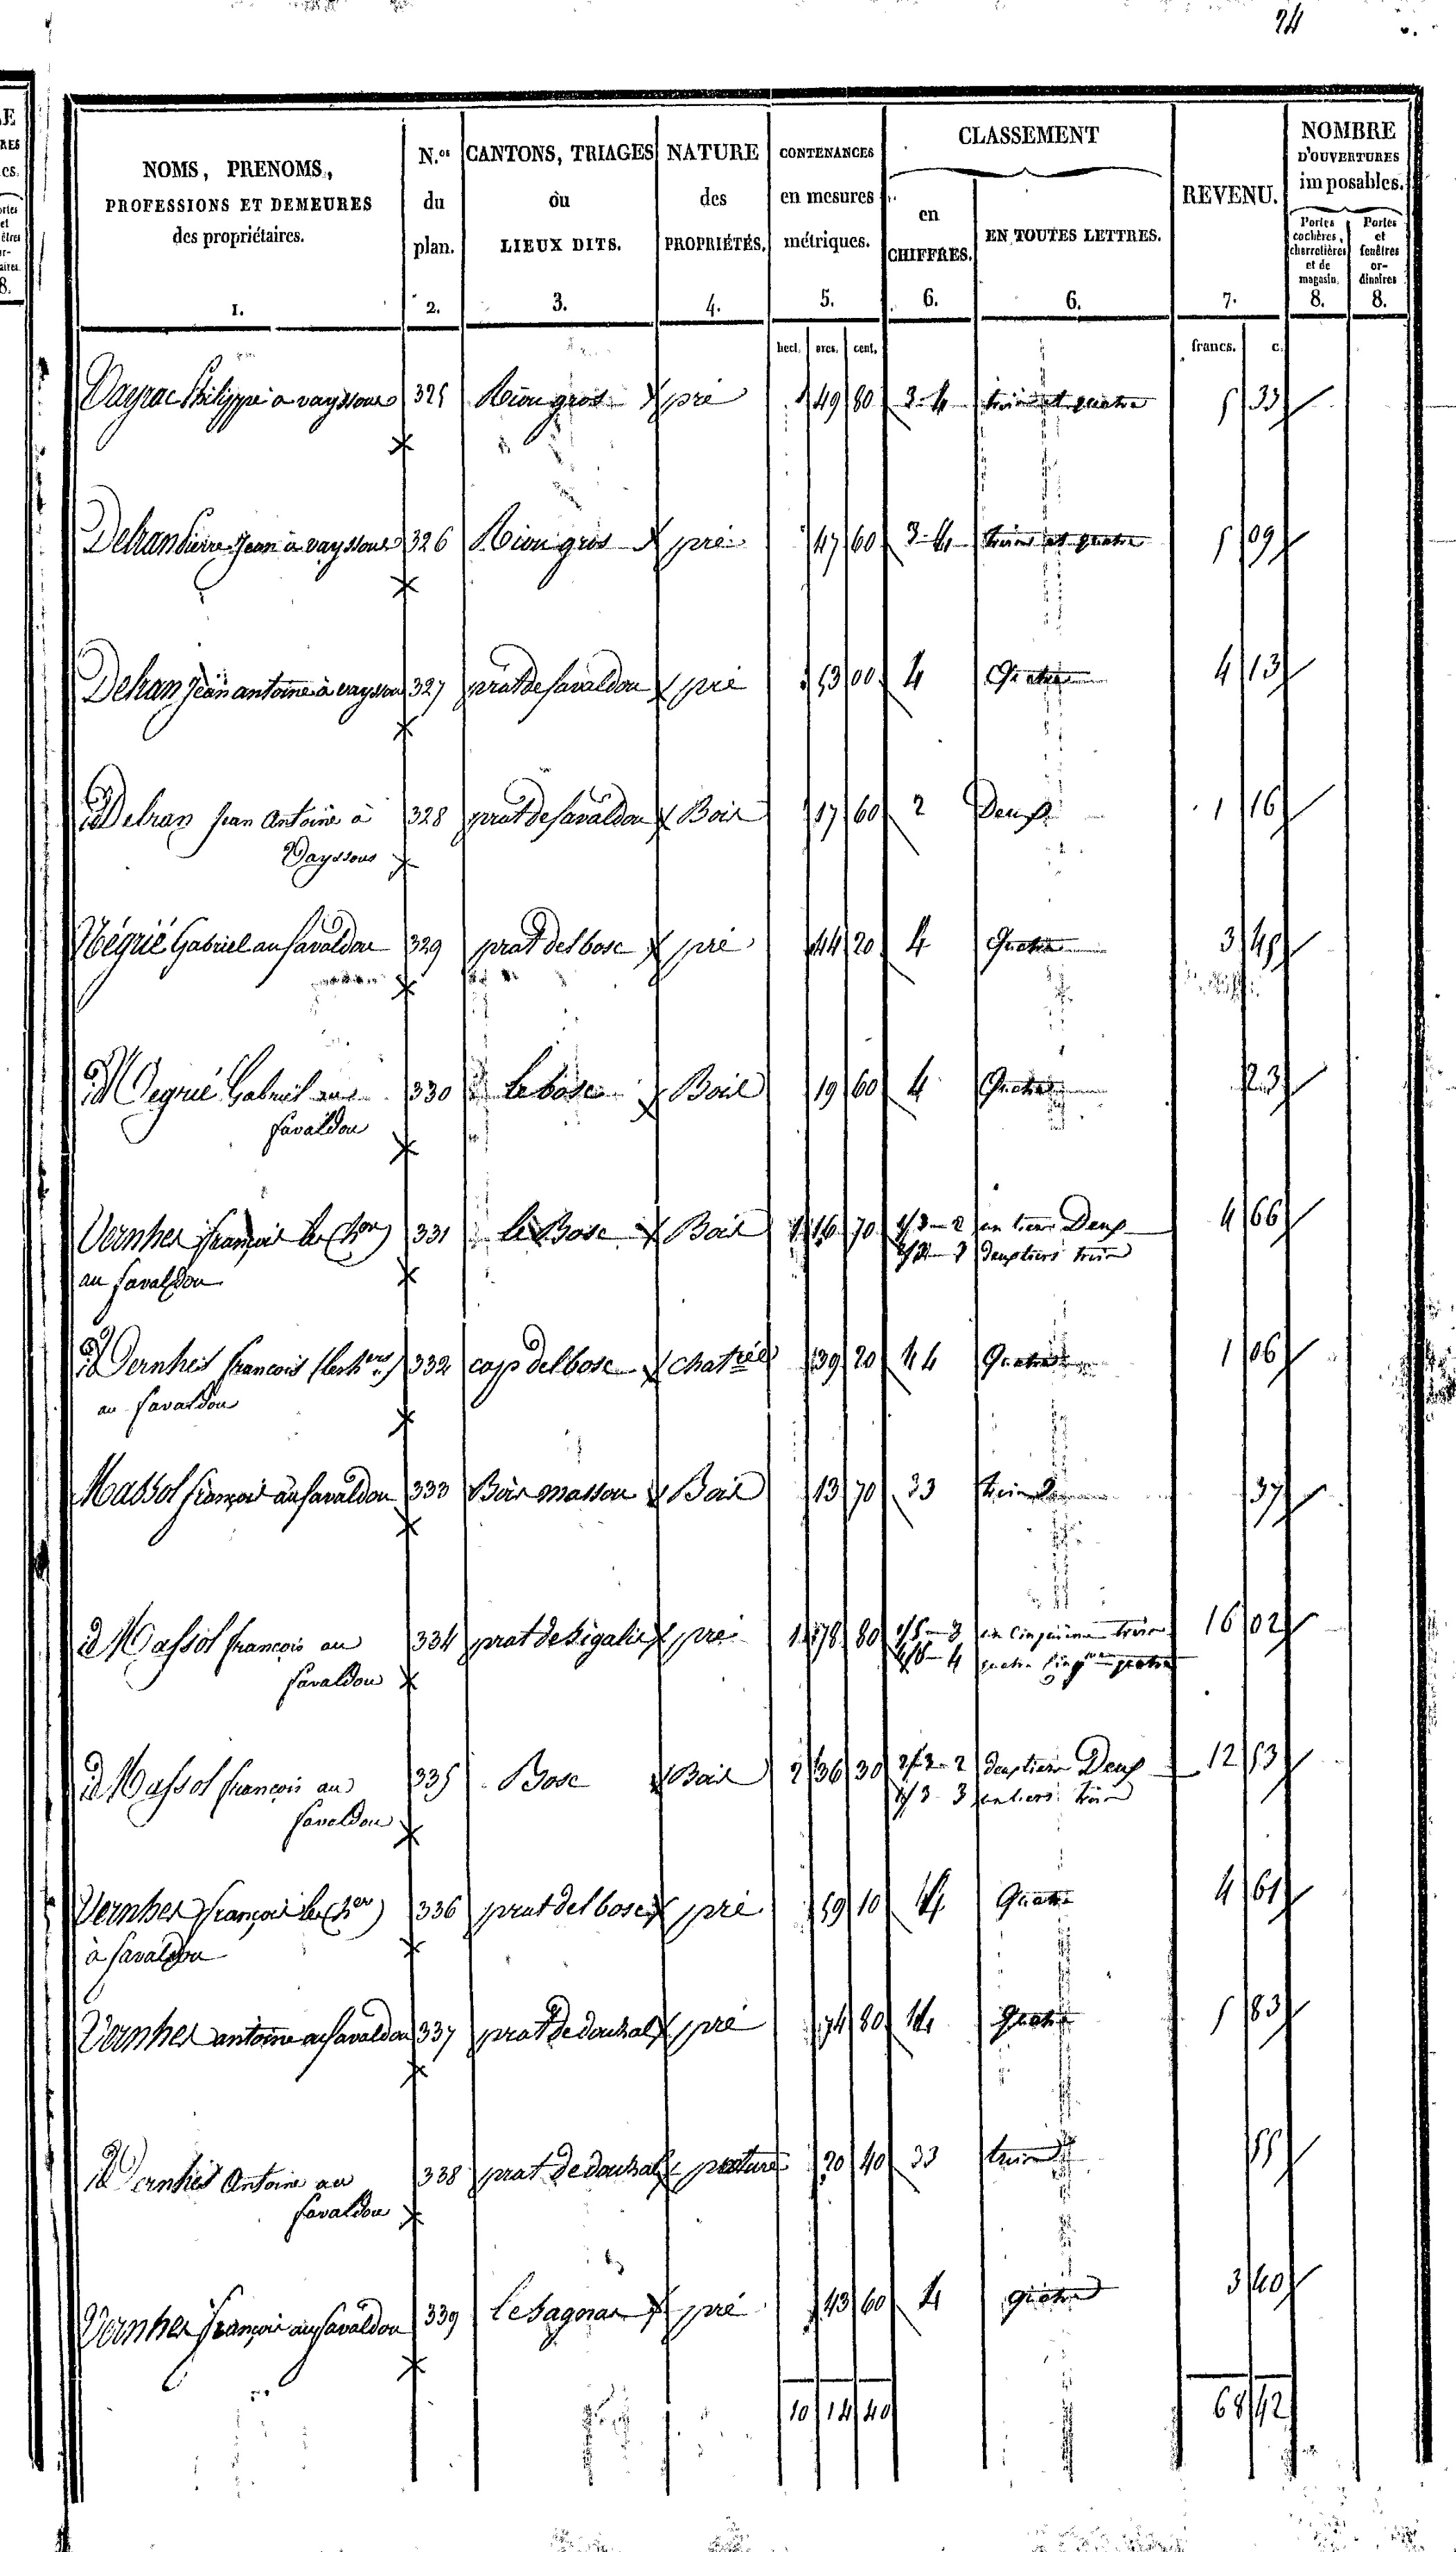 24
NOMS, PRENOMS,
PROFESSIONS ET DEMEURES
des propriétaires.
1.
N.os
du
plan.
2.
CANTONS, TRIAGES
ou
LIEUX DITS.
3.
NATURE
des
PROPRIÉTÉS.
4.
CONTENANCES
en mesures
métriques.
5.
CLASSEMENT
en
CHIFFRES.
6.
EN TOUTES LETTRES.
6.
REVENU.
7.
NOMBRE
D'OUVERTURES
imposables.
Portes
cochères,
charretières
et de
magasin.
8.
Portes
et
fenêtres
or-
dinaires
8.
hect. ares. cent. francs. c.
Vayrac Philippe à vayssous 325 Riou gros pré 49 80 3-4 trois et quatre 5 33
Delran Pierre Jean à vayssous 326 Riou gros pré 47 60 3-4 trois et quatre 5 09
Delran Jean antoine à vayssou 327 prat de favaldou pré 53 00 4 Quatre 4 13
id Delran Jean Antoine à 328 prat de favaldou Bois 17 60 2 Deux 1 16
Vayssous
Négrié Gabriel au favaldou 329 prat del bosc pré 44 20 4 Quatre 3 45
id Negrié Gabriel au 330 Le bosc Bois 19 60 4 Quatre 23
favaldou
Vernhes françois (les hers) 331 le Bosc Bois 1 16 70 1/3-2 un tiers Deux 4 66
au favaldou 2/3-3 deux tiers trois
id Vernhes francois (les hers) 332 cap del bosc chatrée 39 20 4 4 Quatre 1 06
au favaldou
Massol françois au favaldou 333 Bois massou Bois 13 70 33 trois 37
id Massol francois au 334 prat de sigalie pré 1 78 80 1/5-3 un cinquieme trois 16 02
favaldou 4/5-4 quatre cinqmes quatre
id Massol francois au 335 Bosc Bois 2 36 30 2/3-2 deux tiers Deux 12 53
favaldou 1/3-3 un tiers trois
Vernhes françois (les hers) 336 prat del bosc pré 59 10 4 Quatre 4 61
à favaldou
Vernhes antoine au favaldou 337 prat de douzal pré 74 80 4 Quatre 5 83
id Vernhes Antoine au 338 prat de douzal pature 20 40 33 trois 55
favaldou
Vernhes françois au favaldou 339 le Sagnas pré 43 60 4 quatre 3 40
10 14 40 68 42